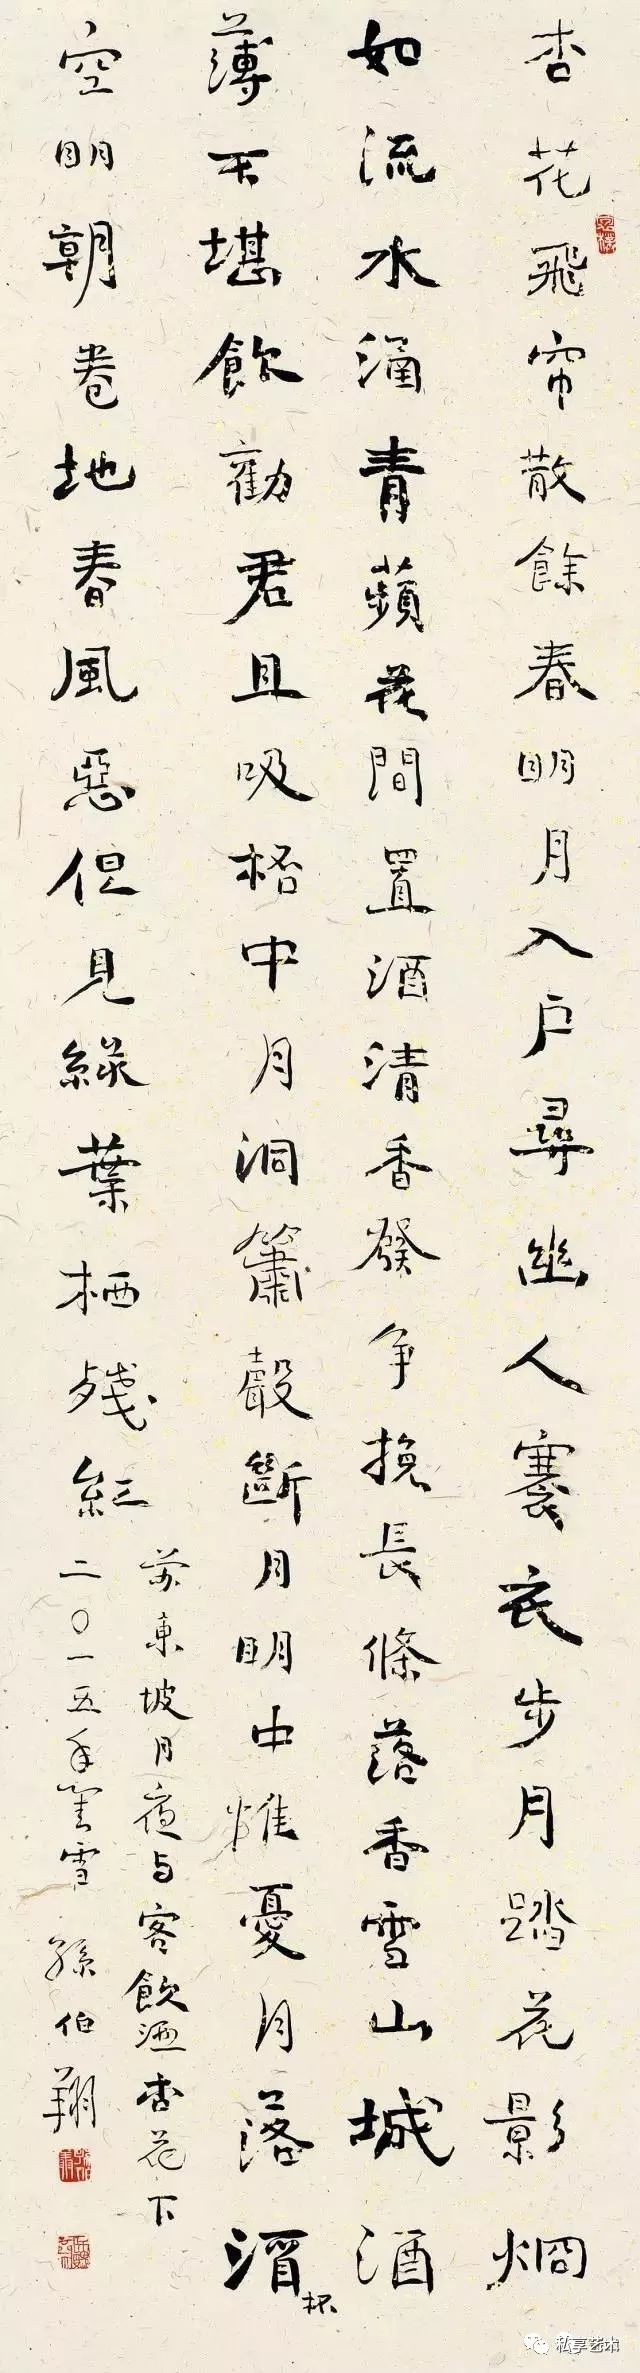 杏花飛帘散餘春明月入户尋幽人褰衣步月踏花影炯
如流水涵青蘋花間置酒清香發争挽長條落香雪山城酒
薄不堪飲勸君且吸桮中月洞簫聲斷月明中惟憂月落酒杯
空明朝卷地春風惡但見緑葉栖残紅
蘇東坡月夜与客飲酒杏花下
二〇一五年雪 孫伯翔
私享艺术